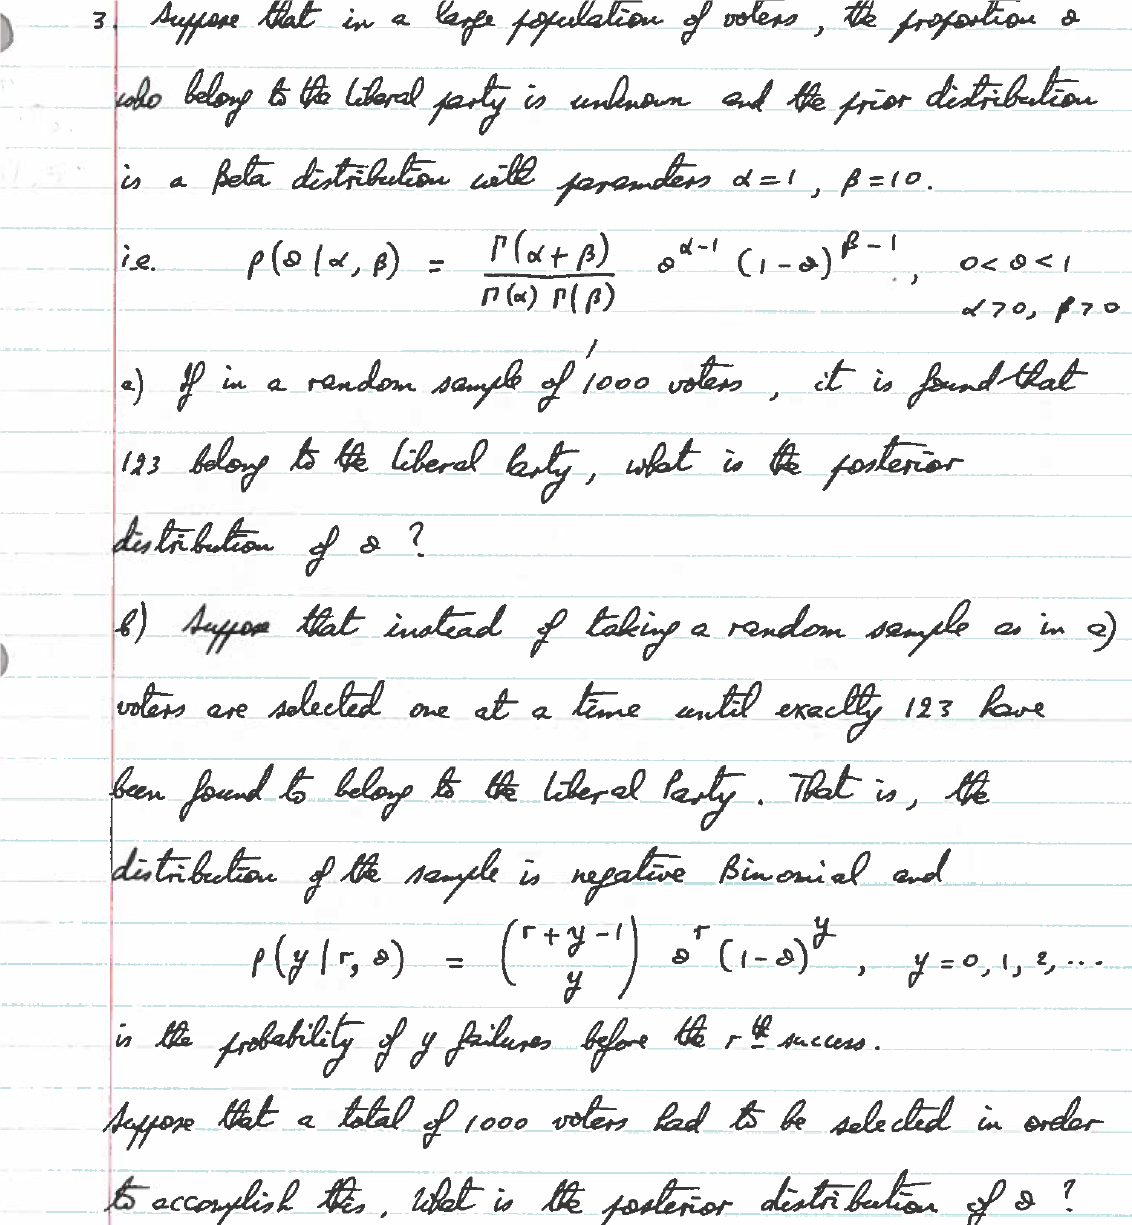 3. Suppose that in a large population of voters, the proportion θ
who belong to the Liberal party is unknown and the prior distribution
is a Beta distribution with parameters α=1, β=10.
i.e. p(θ|α, β) = Γ(α+β) / Γ(α) Γ(β) θ^(α-1) (1-θ)^(β-1), 0<θ<1
α>0, β>0
a) If in a random sample of 1000 voters, it is found that
123 belong to the Liberal Party, what is the posterior
distribution of θ?
b) Suppose that instead of taking a random sample as in a)
voters are selected one at a time until exactly 123 have
been found to belong to the Liberal Party. That is, the
distribution of the sample is negative Binomial and
p(y|r, θ) = (r+y-1 y) θ^r (1-θ)^y, y=0,1,2,...
is the probability of y failures before the rth success.
Suppose that a total of 1000 voters had to be selected in order
to accomplish this. What is the posterior distribution of θ?